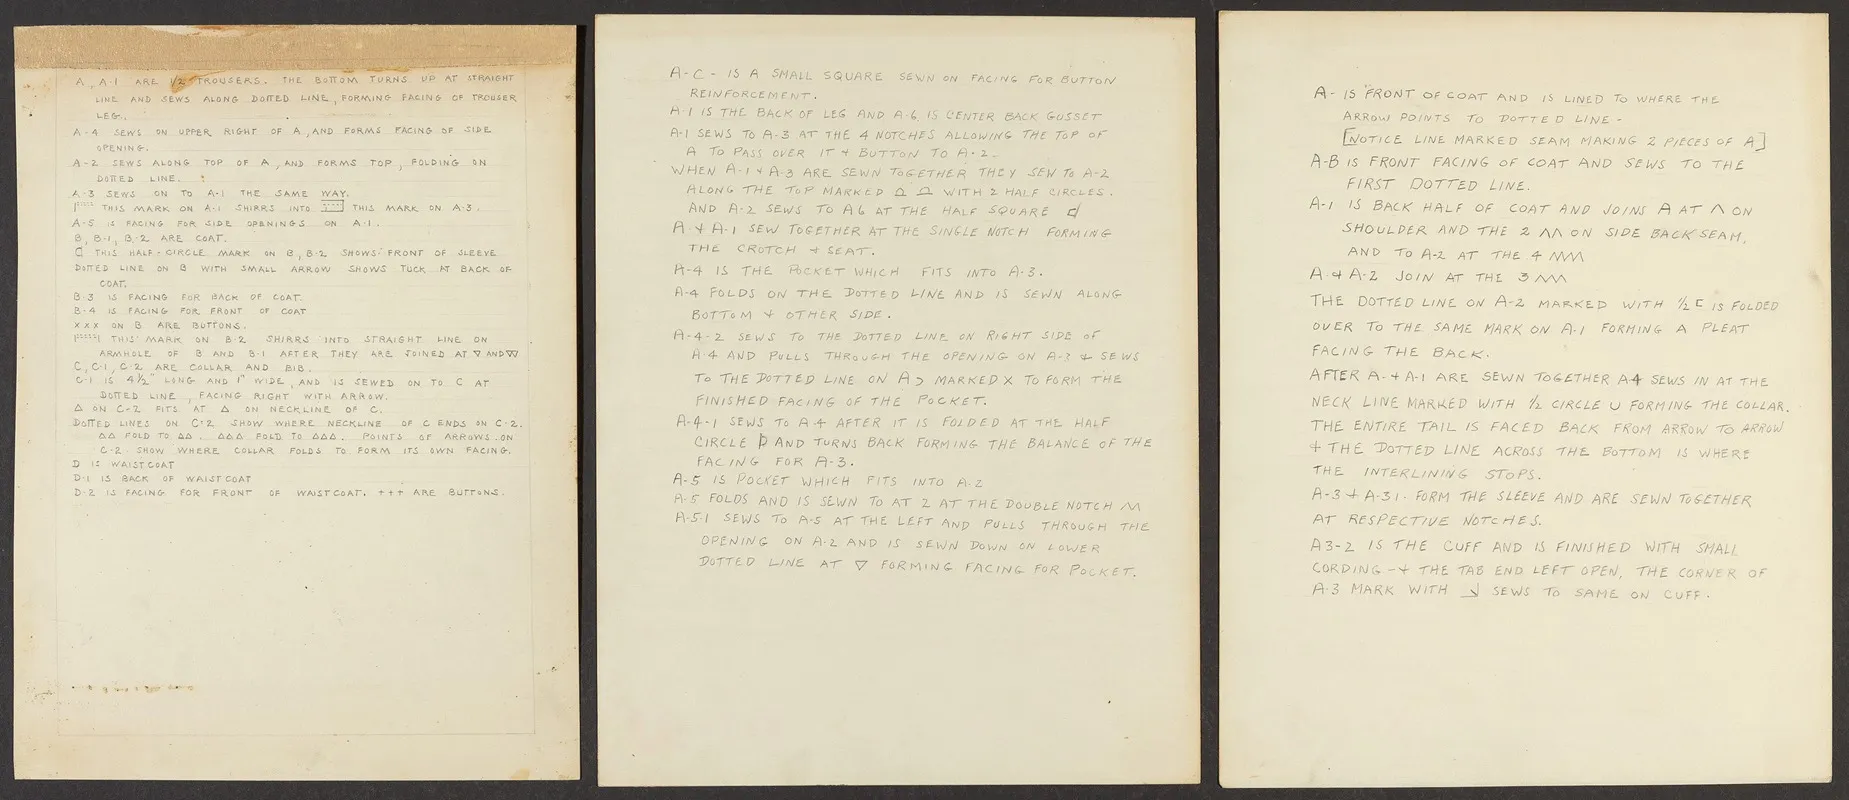 A, A-1 ARE 1/2 TROUSERS. THE BOTTOM TURNS UP AT STRAIGHT
LINE AND SEWS ALONG DOTTED LINE, FORMING FACING OF TROUSER
LEG.
A-4 SEWS ON UPPER RIGHT OF A, AND FORMS FACING OF SIDE
OPENING.
A-2 SEWS ALONG TOP OF A, AND FORMS TOP, FOLDING ON
DOTTED LINE.
A-3 SEWS ON TO A-1 THE SAME WAY.
THIS MARK ON A-1 SHIRRS INTO THIS MARK ON A-3.
A-5 IS FACING FOR SIDE OPENINGS ON A-1.
B, B-1, B-2 ARE COAT.
THIS HALF-CIRCLE MARK ON B, B-2 SHOWS FRONT OF SLEEVE
DOTTED LINE ON B WITH SMALL ARROW SHOWS TUCK AT BACK OF
COAT.
B-3 IS FACING FOR BACK OF COAT.
B-4 IS FACING FOR FRONT OF COAT
XXX ON B ARE BUTTONS.
THIS MARK ON B-2 SHIRRS INTO STRAIGHT LINE ON
ARMHOLE OF B AND B-1 AFTER THEY ARE JOINED AT ▽ AND ▽▽
C, C-1, C-2 ARE COLLAR AND BIB.
C-1 IS 4½" LONG AND 1" WIDE, AND IS SEWED ON TO C AT
DOTTED LINE, FACING RIGHT WITH ARROW.
△ ON C-2 FITS AT △ ON NECKLINE OF C.
DOTTED LINES ON C-2 SHOW WHERE NECKLINE OF C ENDS ON C-2.
△△ FOLD TO △△. △△△ FOLD TO △△△. POINTS OF ARROWS ON
C-2 SHOW WHERE COLLAR FOLDS TO FORM ITS OWN FACING.
D IS WAISTCOAT
D-1 IS BACK OF WAISTCOAT
D-2 IS FACING FOR FRONT OF WAISTCOAT. +++ ARE BUTTONS.
A-C - IS A SMALL SQUARE SEWN ON FACING FOR BUTTON
REINFORCEMENT.
A-1 IS THE BACK OF LEG AND A-6 IS CENTER BACK GUSSET
A-1 SEWS TO A-3 AT THE 4 NOTCHES ALLOWING THE TOP OF
A TO PASS OVER IT + BUTTON TO A-2.
WHEN A-1 + A-3 ARE SEWN TOGETHER THEY SEW TO A-2
ALONG THE TOP MARKED WITH 2 HALF CIRCLES.
AND A-2 SEWS TO A6 AT THE HALF SQUARE
A + A-1 SEW TOGETHER AT THE SINGLE NOTCH FORMING
THE CROTCH + SEAT.
A-4 IS THE POCKET WHICH FITS INTO A-3.
A-4 FOLDS ON THE DOTTED LINE AND IS SEWN ALONG
BOTTOM + OTHER SIDE.
A-4-2 SEWS TO THE DOTTED LINE ON RIGHT SIDE OF
A-4 AND PULLS THROUGH THE OPENING ON A-3 + SEWS
TO THE DOTTED LINE ON MARKED X TO FORM THE
FINISHED FACING OF THE POCKET.
A-4-1 SEWS TO A-4 AFTER IT IS FOLDED AT THE HALF
CIRCLE AND TURNS BACK FORMING THE BALANCE OF THE
FACING FOR A-3.
A-5 IS POCKET WHICH FITS INTO A-2
A-5 FOLDS AND IS SEWN TO AT 2 AT THE DOUBLE NOTCH ʌʌ
A-5-1 SEWS TO A-5 AT THE LEFT AND PULLS THROUGH THE
OPENING ON A-2 AND IS SEWN DOWN ON LOWER
DOTTED LINE AT ▽ FORMING FACING FOR POCKET.
A- IS FRONT OF COAT AND IS LINED TO WHERE THE
ARROW POINTS TO DOTTED LINE--
[NOTICE LINE MARKED SEAM MAKING 2 PIECES OF A]
A-B IS FRONT FACING OF COAT AND SEWS TO THE
FIRST DOTTED LINE.
A-1 IS BACK HALF OF COAT AND JOINS A AT ʌ ON
SHOULDER AND THE 2 ʌʌ ON SIDE BACK SEAM,
AND TO A-2 AT THE 4 ʌʌʌʌ
A + A-2 JOIN AT THE 3 ʌʌʌ
THE DOTTED LINE ON A-2 MARKED WITH ½ ⊏ IS FOLDED
OVER TO THE SAME MARK ON A-1 FORMING A PLEAT
FACING THE BACK.
AFTER A- + A-1 ARE SEWN TOGETHER A4 SEWS IN AT THE
NECK LINE MARKED WITH ½ CIRCLE ∪ FORMING THE COLLAR.
THE ENTIRE TAIL IS FACED BACK FROM ARROW TO ARROW
+ THE DOTTED LINE ACROSS THE BOTTOM IS WHERE
THE INTERLINING STOPS.
A-3 + A-31. FORM THE SLEEVE AND ARE SEWN TOGETHER
AT RESPECTIVE NOTCHES.
A3-2 IS THE CUFF AND IS FINISHED WITH SMALL
CORDING -+ THE TAB END LEFT OPEN, THE CORNER OF
A-3 MARK WITH SEWS TO SAME ON CUFF.